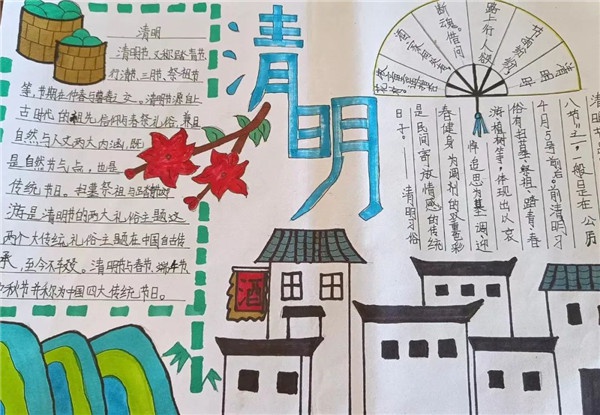 清明
清明节,又称踏青节、
行清节、三月节、祭祖节
等,节期在仲春与暮春之交。清明节源自上
古时代的祖先信仰与春祭礼俗,兼具
自然与人文两大内涵,既
是自然节气点,也是
传统节日。扫墓祭祖与踏青郊
游是清明节的两大礼俗主题,这
两个大传统礼俗主题在中国自古传
承,至今不辍。清明节与春节、端午节
中秋节并称为中国四大传统节日。
清明
酒
清明
时节雨纷纷
路上行人欲
断魂借问
酒家何处有
清明
八节"之一,一般是在公历
4月5号前后。清明习
俗有扫墓、祭祖、踏青、春
游、植树等,体现出以哀
悼追思为基调,迎
春健身为调剂的双重色彩
是民间寄放情感的传统
日子。——清明习俗